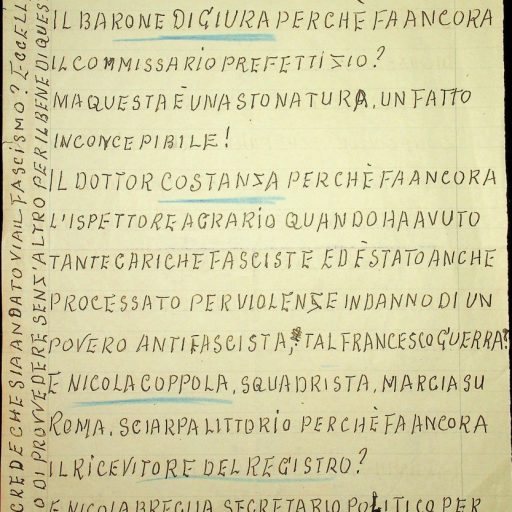 IL BARONE DI GIURA PERCHÈ FA ANCORA
IL COMMISSARIO PREFETTIZIO?
MA QUESTA È UNA STONATURA, UN FATTO
INCONCEPIBILE!
IL DOTTOR COSTANZA PERCHÈ FA ANCORA
L'ISPETTORE AGRARIO QUANDO HA AVUTO
TANTE CARICHE FASCISTE ED È STATO ANCHE
PROCESSATO PER VIOLENZE IN DANNO DI UN
POVERO ANTIFASCISTA, TAL FRANCESCO GUERRA?
E NICOLA COPPOLA, SQUADRISTA, MARCIA SU
ROMA, SCIARPA LITTORIO PERCHÈ FA ANCORA
IL RICEVITORE DEL REGISTRO?
E NICOLA BREGLIA SEGRETARIO POLITICO PER
CREDE CHE SIA ANDATO VIA IL FASCISMO? ECCELL
O DI PROVVEDERE SENZ'ALTRO PER IL BENE DI QUES